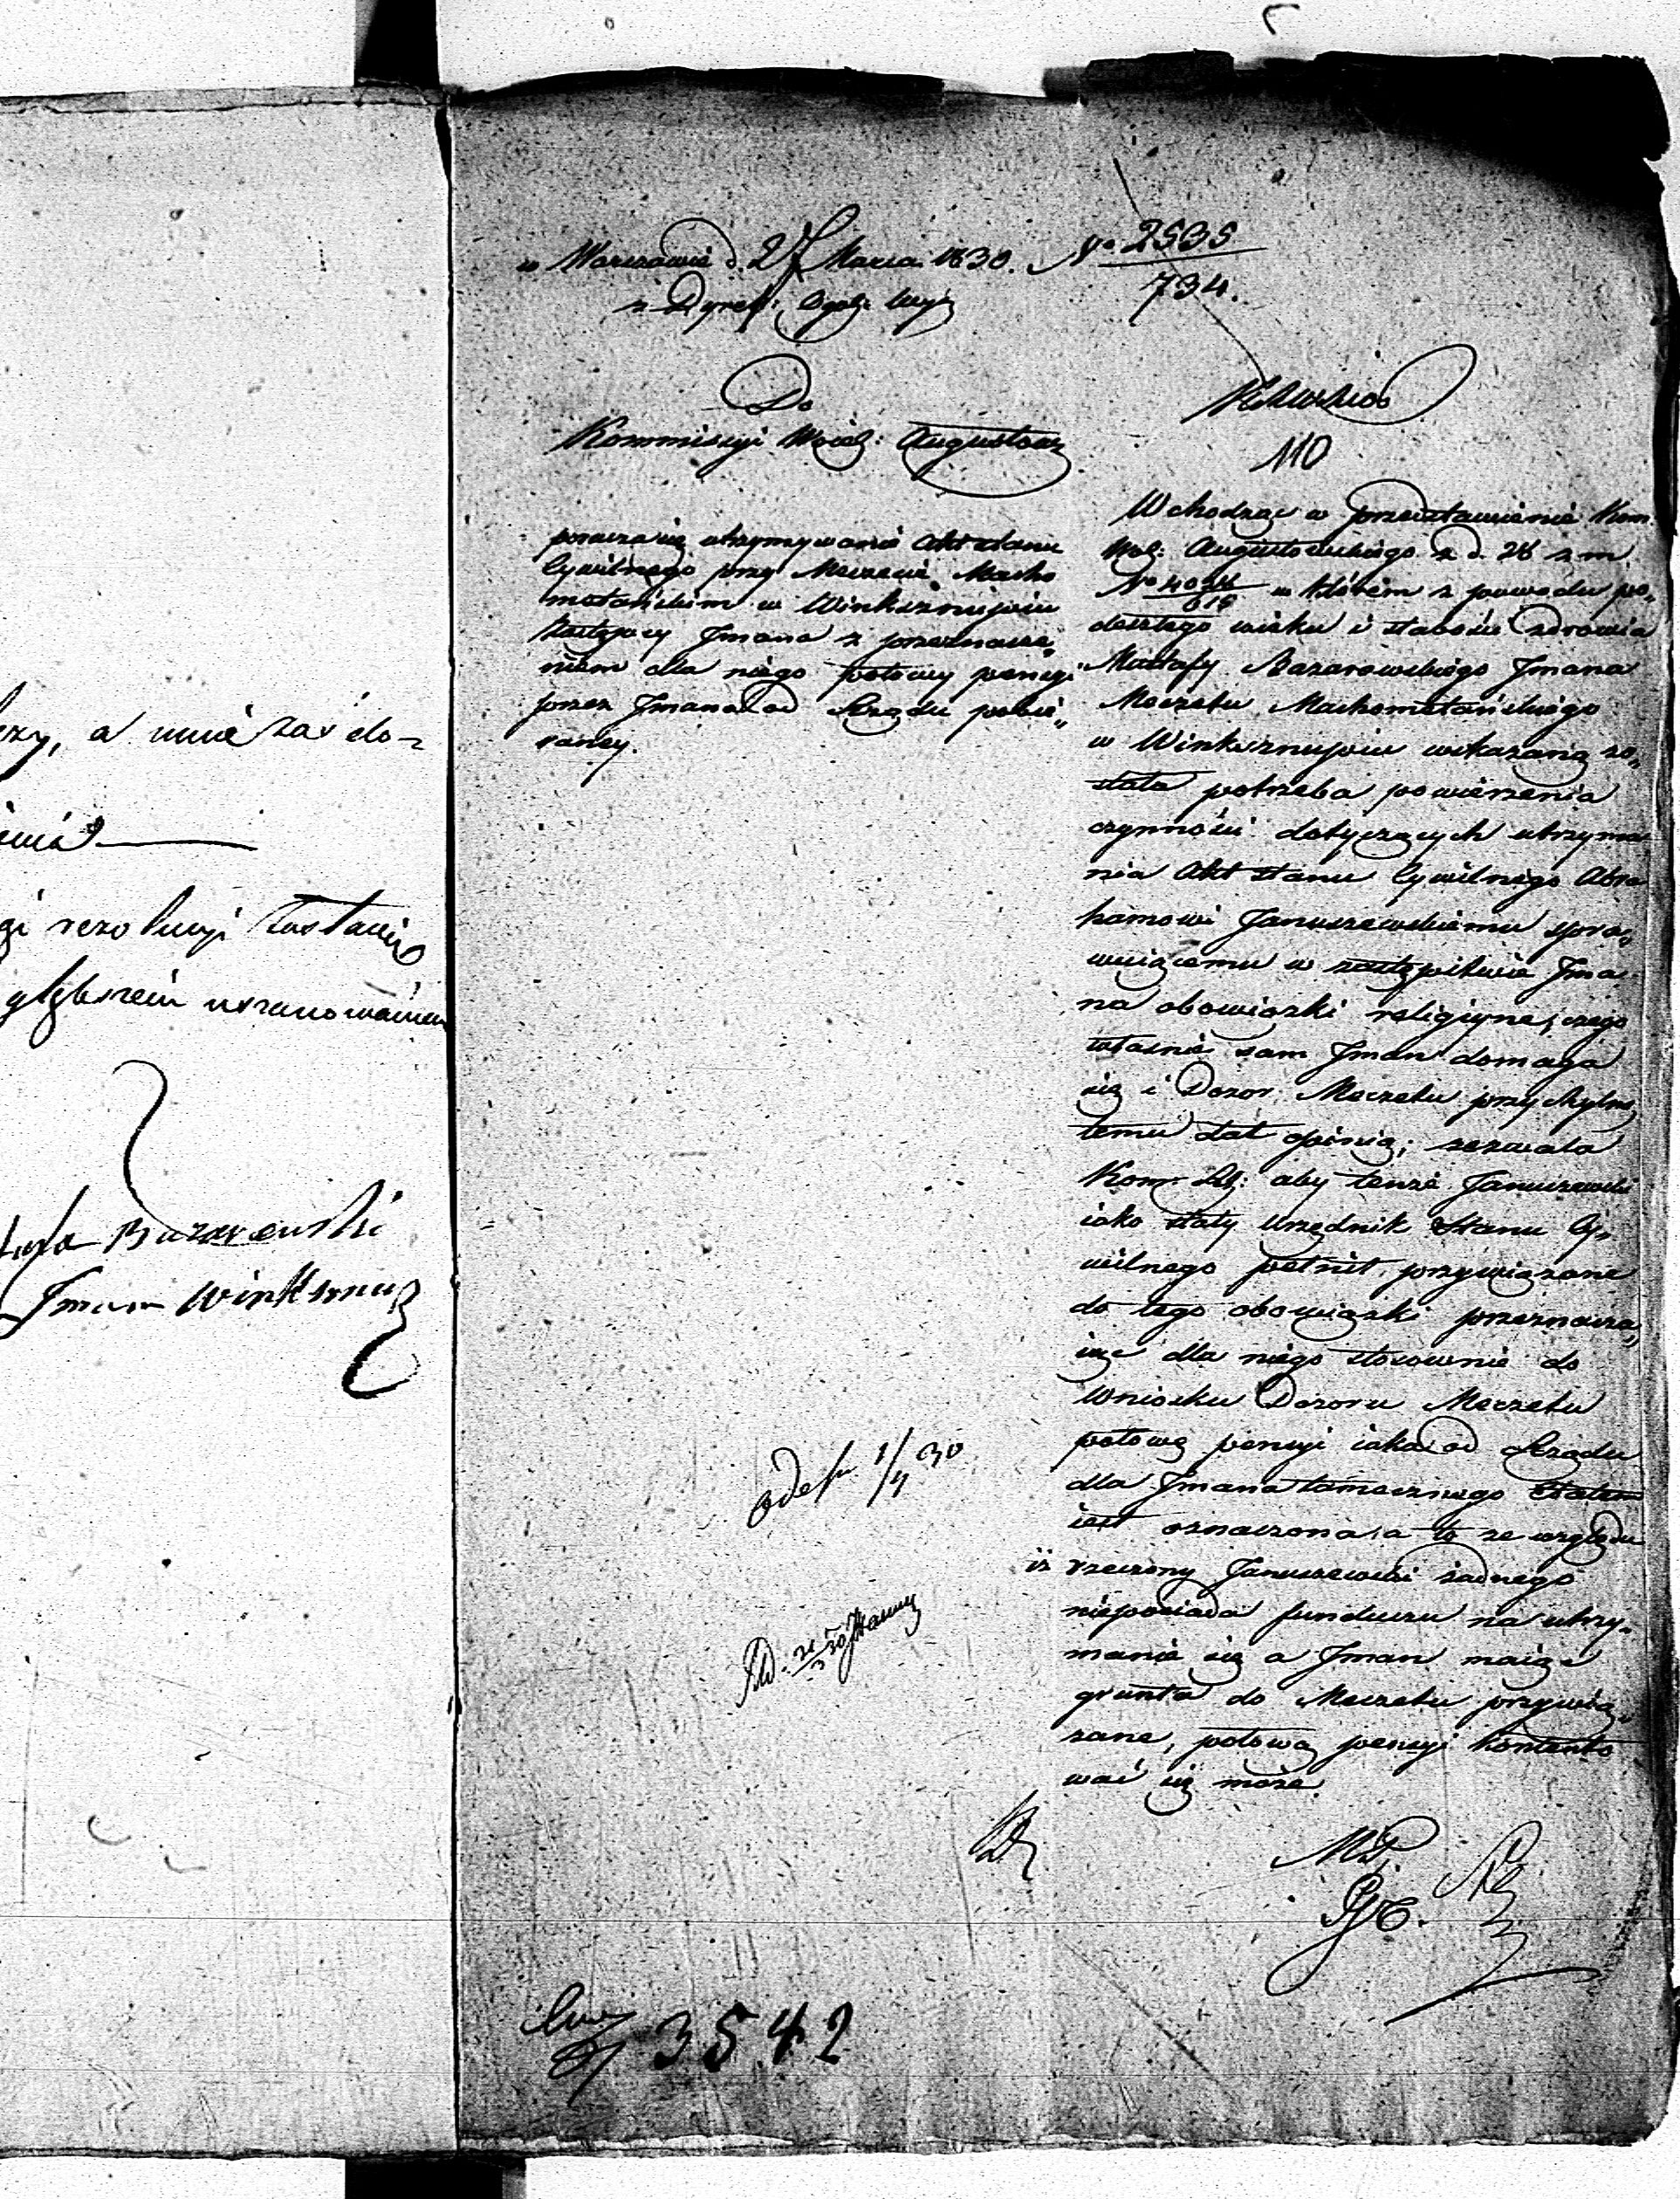 rzy, a mnie zaś do-
gi rezolucyi zostaię
głębszem uszanowaniem
Bazarewski
Iman Winksznup
w Warszawie d. 27 Marca 1830. No 2535
734.
z Dyrek:
Do
Kommissyi Woiew: Augustow
110
porucza się utrzymywanie Akt stanu
Cywilnego przy Meczecie Macho
metańskim w Winksznupiu
Zastępcy Imana z przeznacze„
niem dla niego połowy pensyi
przez Imana od Rządu pobie„
raney.
Wchodząc w przedstawienie Kom
Woj: Augustowskiego z d. 28 z. m.
No w którem z powodu po„
deszłego wieku i słabości zdrowia
Mustafy Bazarewskiego Imana
Meczetu Machometańskiego
w Winksznupiu wskazaną zo„
stała potrzeba powierzenia
czynności dotyczących utrzyma
nia Akt stanu Cywilnego Abra
hamowi Januszewskiemu spra„
wuiącemu w zastępstwie Ima
na obowiązki religiyne, czego
właśnie sam Iman domaga
się i Dozor Meczetu przychylną
temu dał opinią; zezwala
Kom: Rz: aby tenże Januszewski
iako stały Urzędnik Stanu Cy„
wilnego pełnił przywiązane
do tego obowiązki przeznacza„
iąc dla niego stosownie do
Wniosku Dozoru Meczetu
połowę pensyi iaka od Rządu
dla Imana tamecznego Etatem
iest oznaczona, a to ze względu
iż rzeczony Januszewski żadnego
nieposiada funduszu na utrzy„
manie się a Iman maiąc
grunta do Meczetu przywią„
zane, połową pensyi kontento
wać się może.
3542